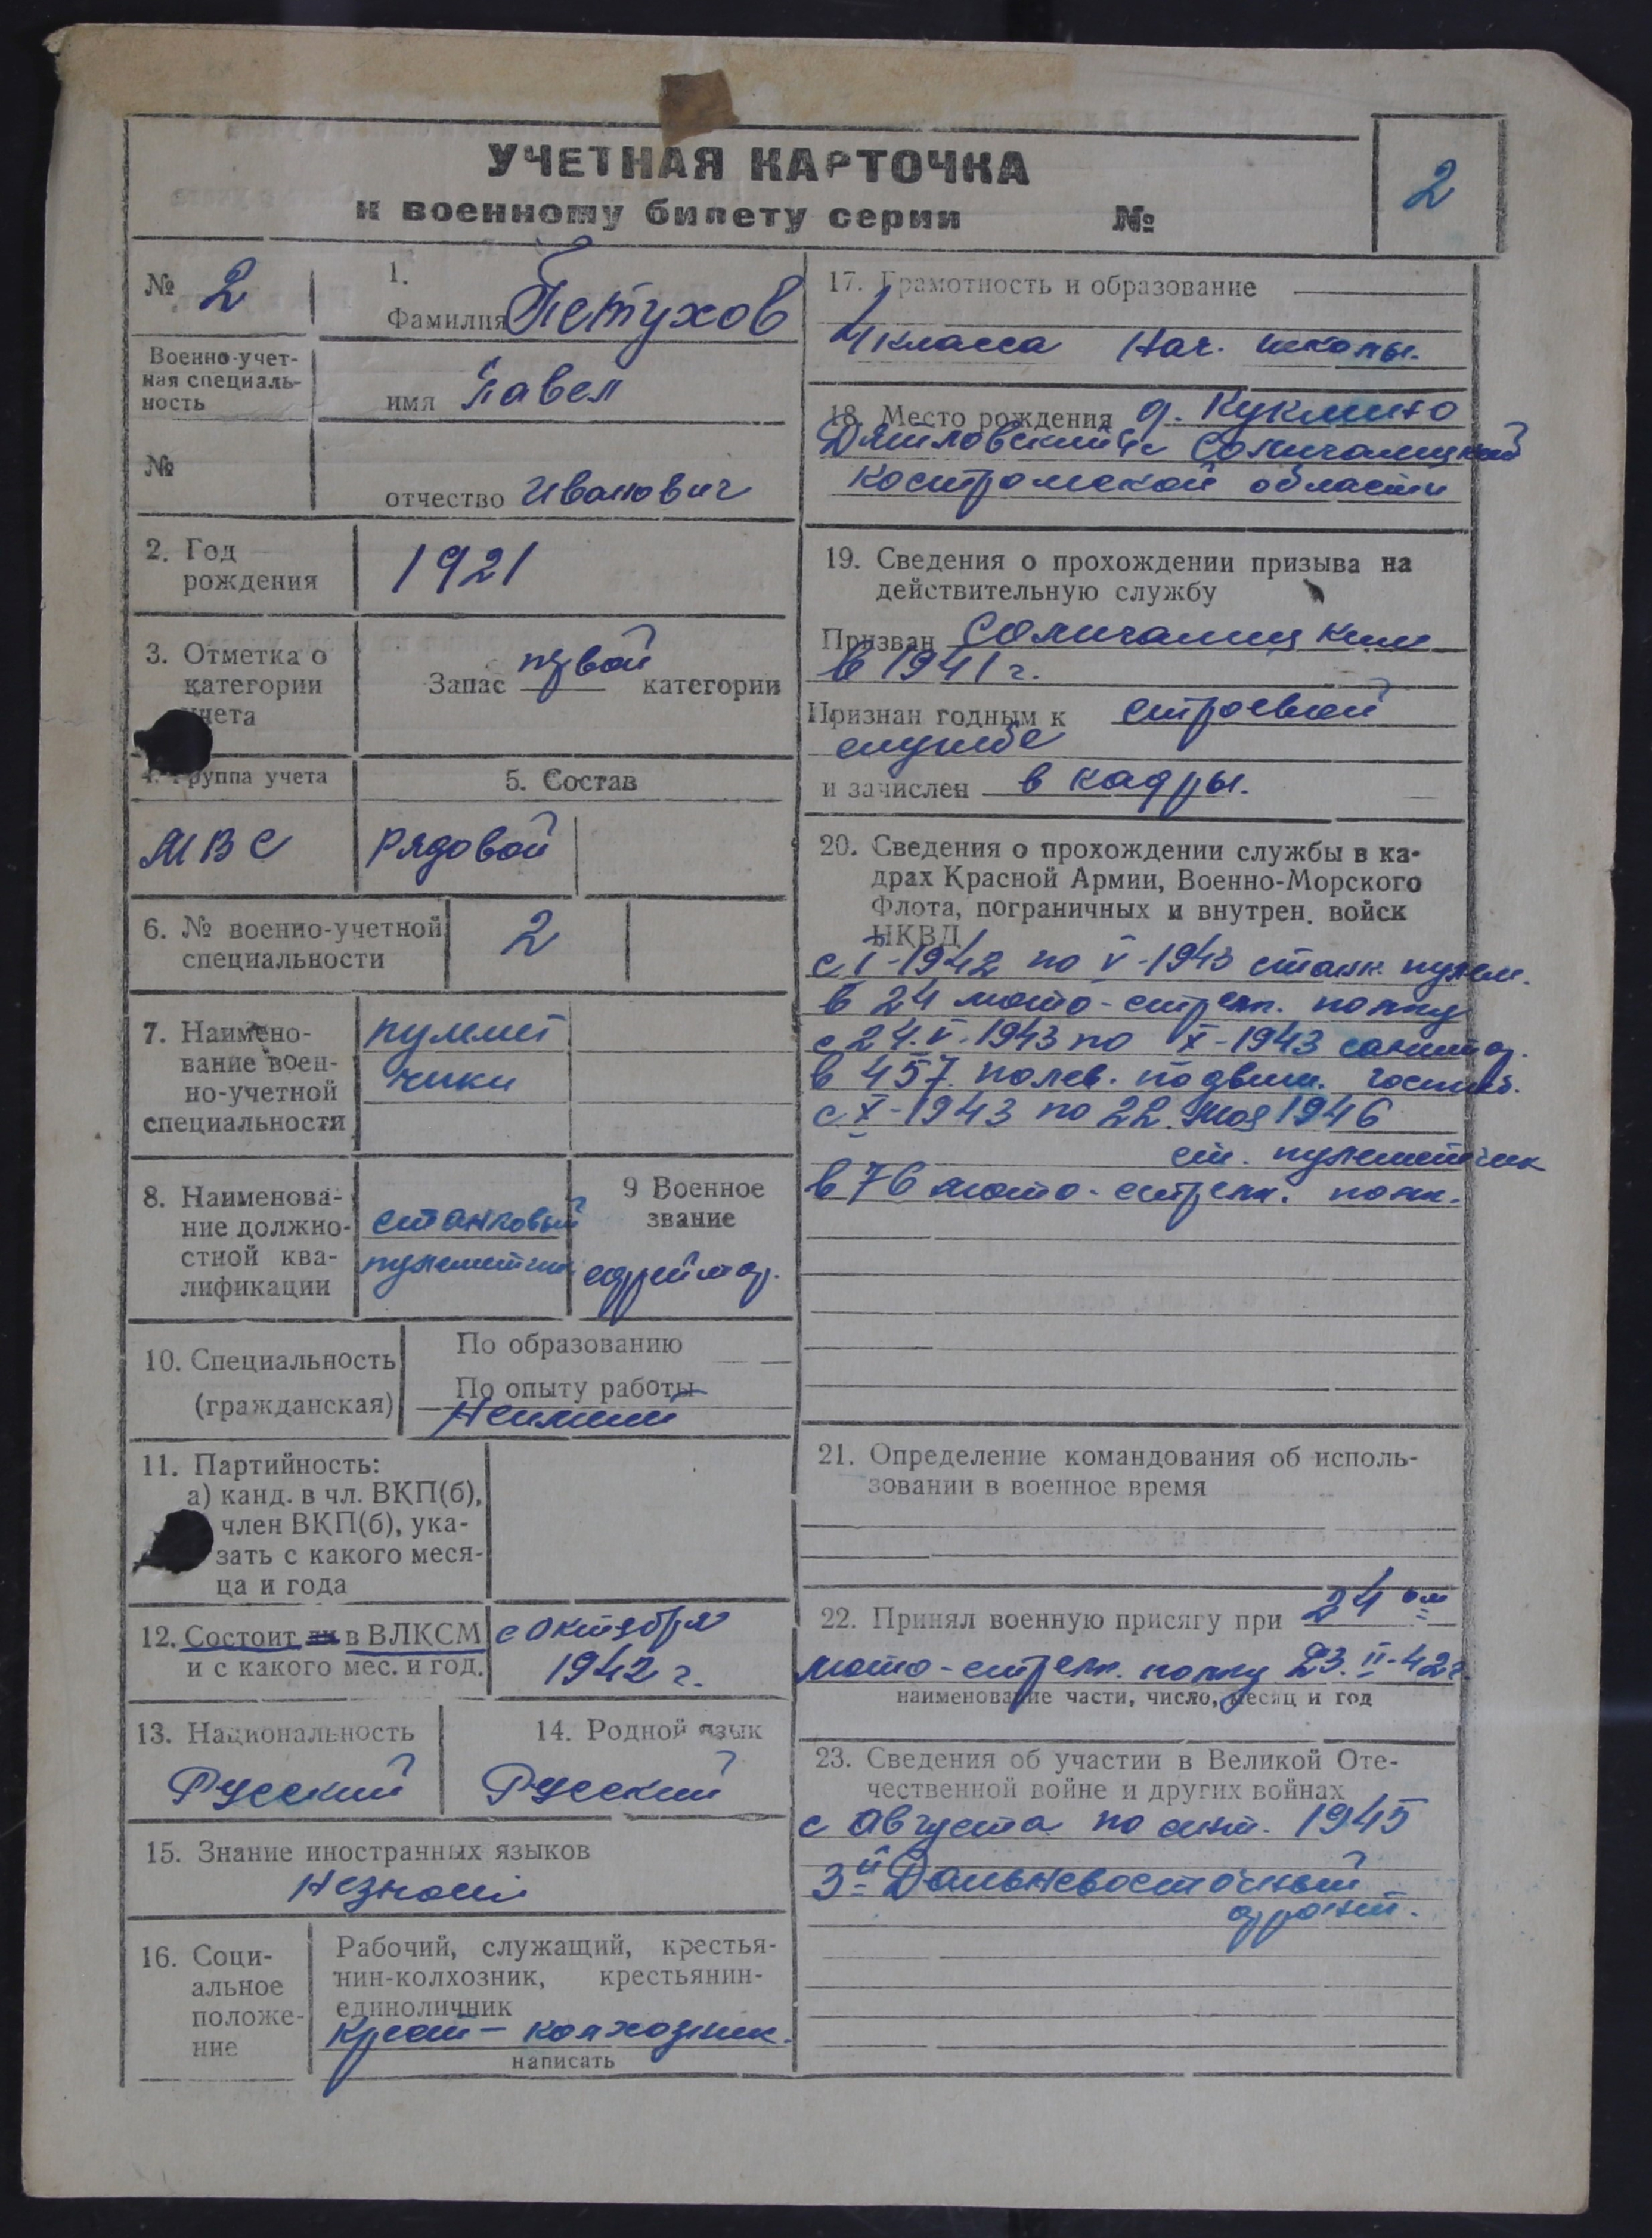 УЧЕТНАЯ КАРТОЧКА
к военному билету серии №
2
№ 2
Военно-учет-
ная специаль-
ность
№
1.
Фамилия Петухов
имя Павел
отчество Иванович
2. Год
рождения
1921
3. Отметка о
категории
учета
Запас первой категории
4. Группа учета
МВС
5. Состав
Рядовой
6. № военно-учетной
специальности
2
7. Наимено-
вание воен-
но-учетной
специальности
пулемет
чики
8. Наименова-
ние должно-
стной ква-
лификации
станковый
пулеметчик
9 Военное
звание
ефрейтор.
10. Специальность
(гражданская)
По образованию
По опыту работы
Неимеет
11. Партийность:
а) канд. в чл. ВКП(б),
член ВКП(б), ука-
зать с какого меся-
ца и года
12. Состоит ли в ВЛКСМ
и с какого мес. и год.
с октября
1942 г.
13. Национальность
Русский
14. Родной язык
Русский
15. Знание иностранных языков
Незнает
16. Соци-
альное
положе-
ние
Рабочий, служащий, крестья-
нин-колхозник, крестьянин-
единоличник
Крест- колхозник.
написать
17. Грамотность и образование
4 класса Нач. школы.
18. Место рождения д. Куклино
Солигалицкий
Костромской области
19. Сведения о прохождении призыва на
действительную службу
Призван Солигалицким
в 1941 г.
Признан годным к строевой
службе
и зачислен в кадры.
20. Сведения о прохождении службы в ка-
драх Красной Армии, Военно-Морского
Флота, пограничных и внутрен. войск
НКВД
с I-1942 по V-1943 станк. пулем.
в 24 мото-стрелк. полку
с 24.V-1943 по X-1943 санитар.
в 457 полев. подвиж. госпит.
с X-1943 по 22. мая 1946
ст. пулеметчик
в 76 мото-стрелк. полк.
21. Определение командования об исполь-
зовании в военное время
22. Принял военную присягу при 24 ом
мото-стрелк. полку 23.II-42г.
наименование части, число, месяц и год
23. Сведения об участии в Великой Оте-
чественной войне и других войнах
с Августа по сент. 1945
3й Дальневосточный
фронт.